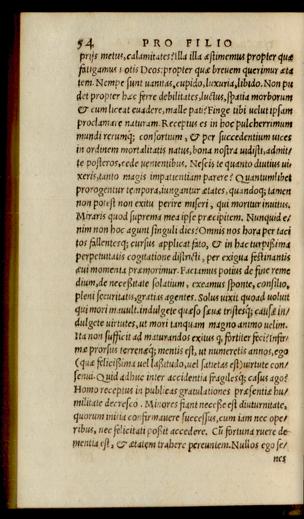 54 PRO FILIO
prijs metus, calamitates? illa illa æstimemus propter quæ
fatigamus uotis Deos: propter quæ brevem querimur æta
tem. Nempe sunt uanitas, cupido, luxuria, libido. Non pu
det propter hæc ferre debilitates, luctus, spatia morborum
& cum liceat euadere, malle pati? Finge tibi uelut ipsam
proclamare naturam. Receptus es in hoc pulcherrimum
mundi rerumq; consortium, & per succedentium uices
in ordinem mortalitatis natus, bona nostra uidisti, admit/
te posteros, cede uenientibus. Nescis te quanto diutius ui/
xeris, tanto magis impatientiam parere? Quantumlibet
prorogentur tempora, iungantur ætates, quandoq; tamen
non potest non exitu perire miseri, qui moritur inuitus.
Miraris quod suprema mea ipse præcipitem. Nunquid e/
nim non hoc agunt singuli dies? Omnis nos hora per taci
tos fallentesq; cursus applicat fato, & in hac turpissima
perpetuitatis cogitatione districti, per exigua festinantis
æui momenta præmorimur. Faciamus potius de fine reme
dium, de necessitate solatium, exeamus sponte, consilio,
pleni securitatis, gratias agentes. Solus uixit quoad uoluit
qui mori mauult. indulgete quæso sæuæ tristesq; causæ in/
dulgete uirtutes, ut mori tanquam magno animo uelim.
Ita non sufficit ad maturandos exitus q, fortiter feci? infir/
mæ prorsus terrenæq; mentis est, ut numeretis annos, ego
(quæ felicissima uel lassitudo, uel satietas est) uirtute con/
senui. Quid adhuc inter accidentia fragilesq; casus ago?
Homo receptus in publicas gratulationes præsentia hu/
militate decresco. Minores fiant necesse est diuturnitate,
quorum initia confirmauere successus, cum iam nec ope/
ribus, nec felicitati possit accedere. Cū fortuna ruere de/
mentia est, & ætatem trahere pereuntem. Nullos ego se/
nes